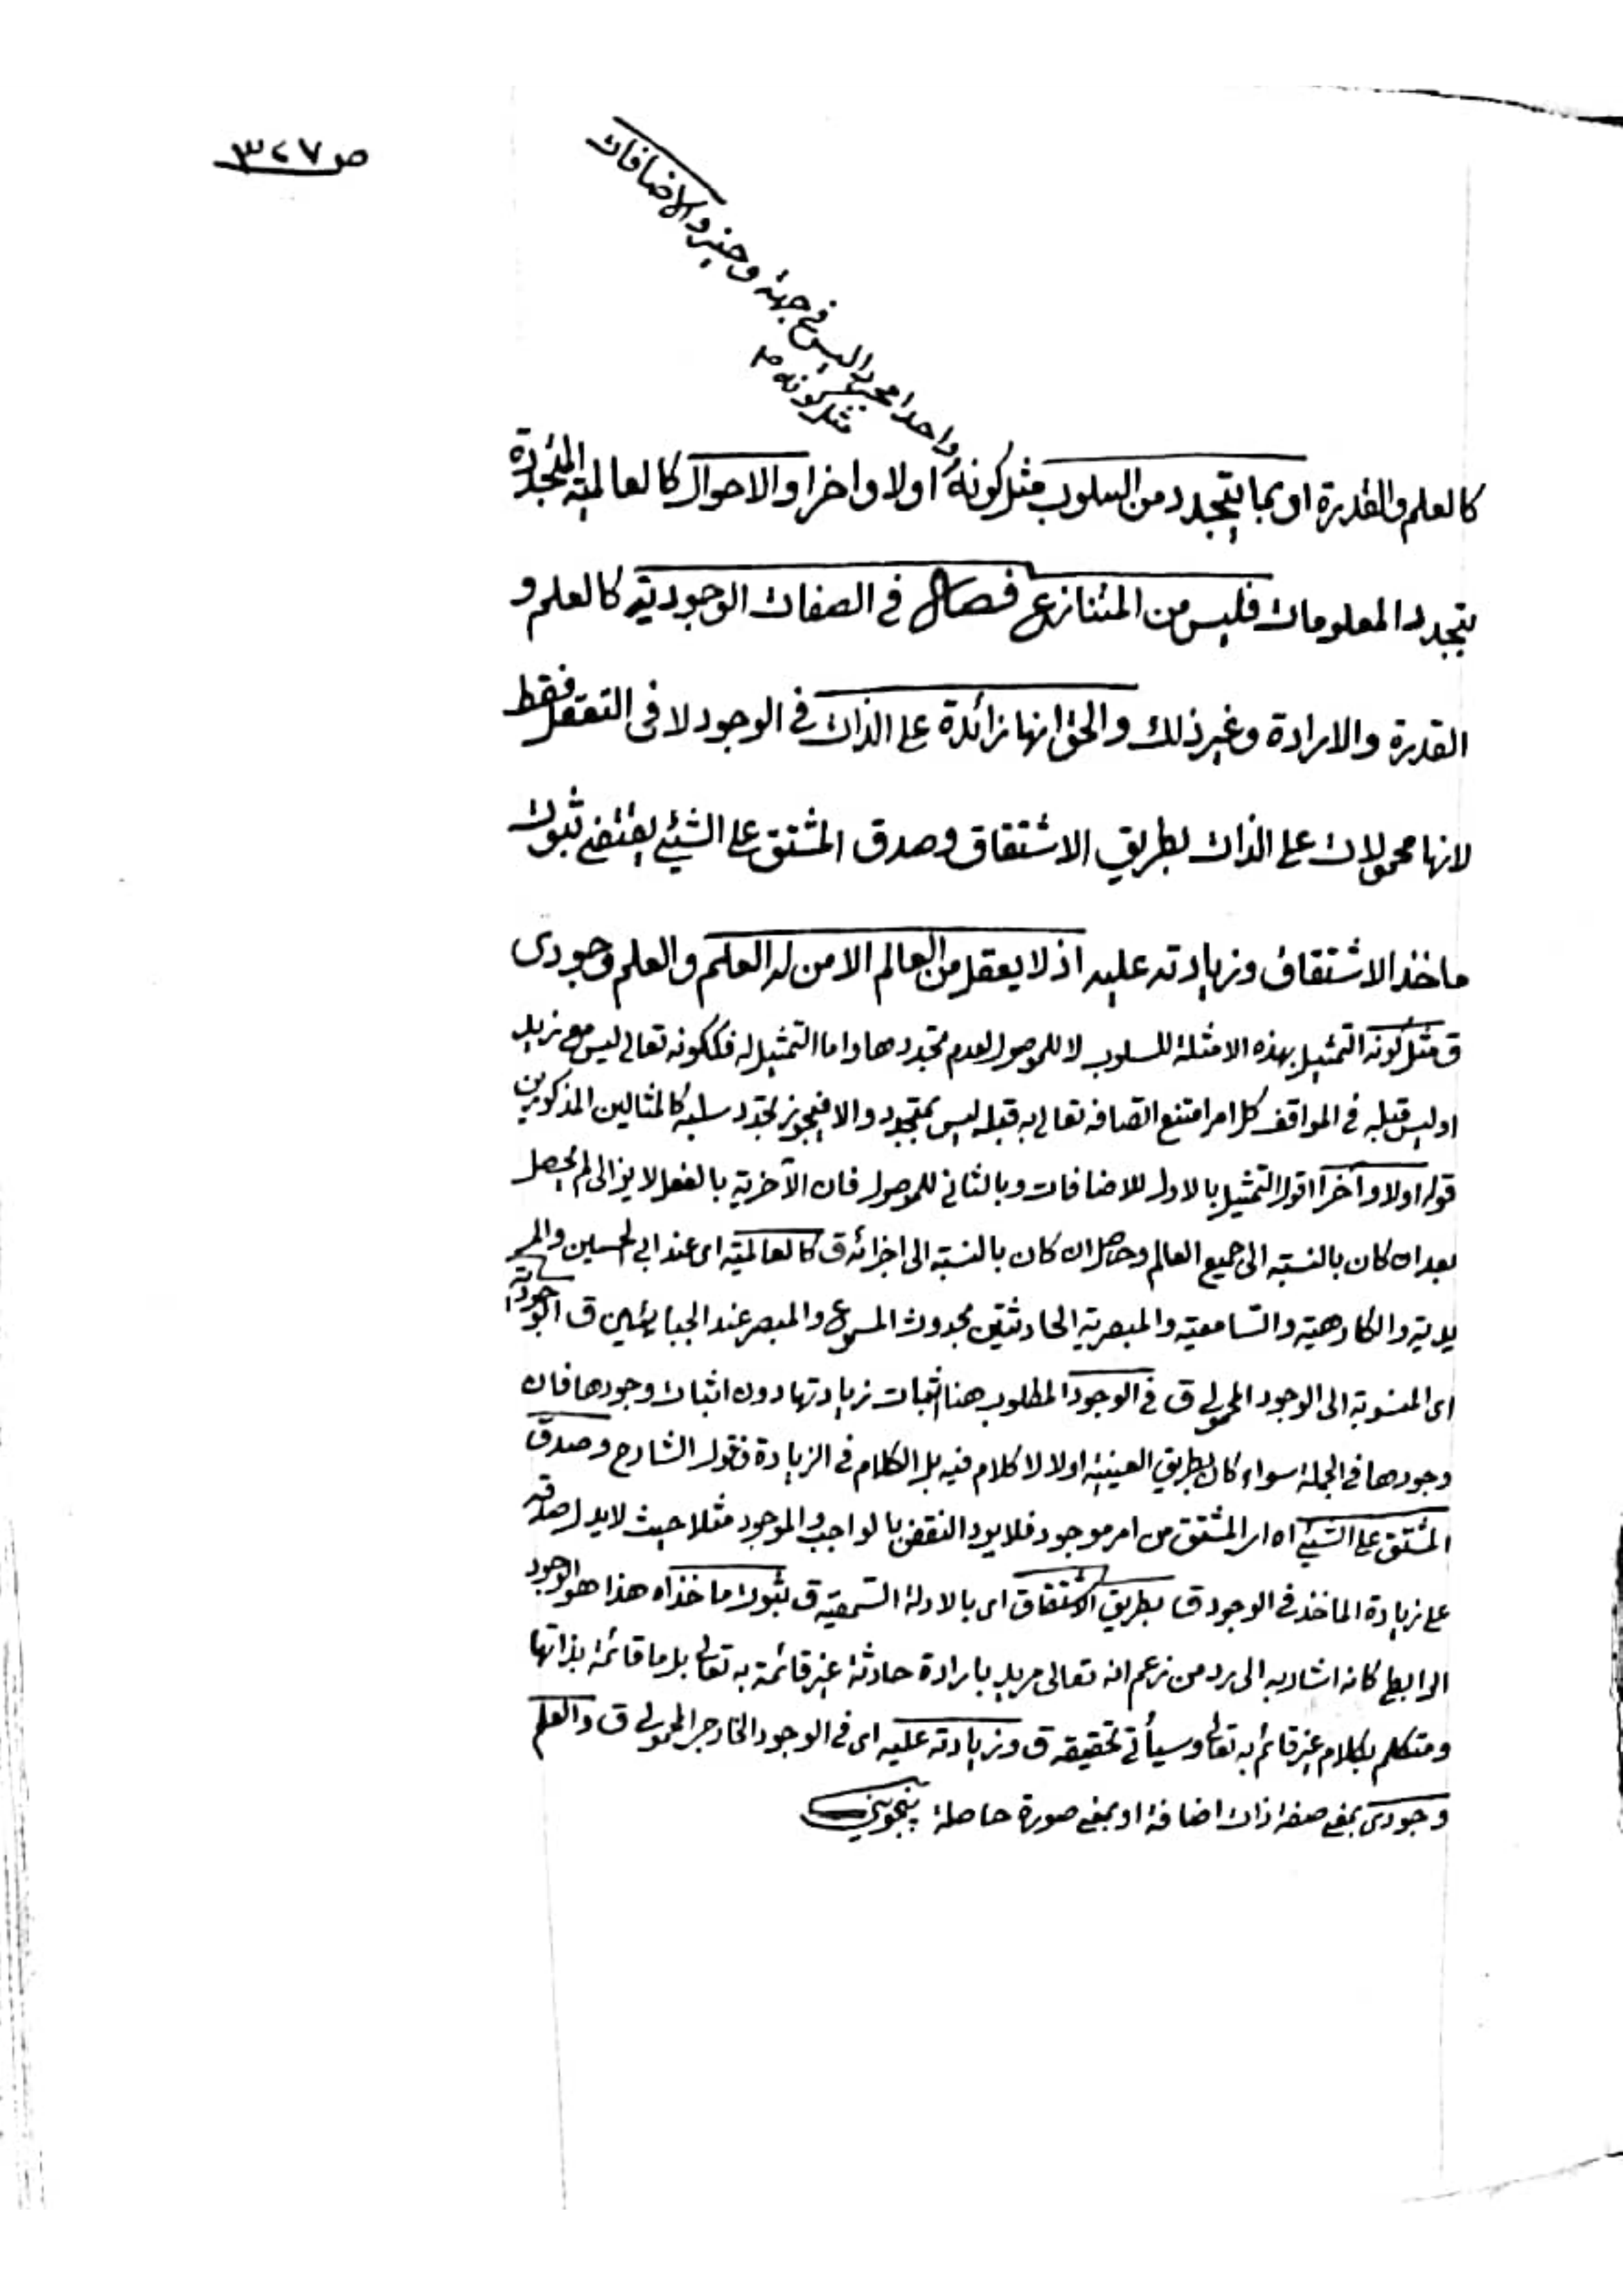 ص ٣٢٧
واحدا مجردا ليس في جهة وحيز والاضافات
مثل كونه
كالعلم والقدرة او بما يتجدد من السلوب مثل كونه اولا واخرا والاحوال كالعالمية المتجددة
بتجدد المعلومات فليس من المتنازع فصل في الصفات الوجودية كالعلم و
القدرة والارادة وغير ذلك والحق انها زائدة على الذات في الوجود لا في التعقل فقط
لانها محمولات على الذات بطريق الاشتقاق وصدق المشتق على الشيئ يقتضي ثبوت
ماخذ الاشتقاق وزيادته عليه اذ لا يعقل من العالم الا من له العلم والعلم وجودى
ق مثل كونه التمثيل بهذه الامثلة للسلوب لا للموصول لعدم تجددها واما التمثيل له فككونه تعالى ليس مع زيد
او ليس قبله في المواقف كل امر امتنع اتصافه تعالى به قبله ليس بمتجدد والا فيجوز تجدد سلبه كالمثالين المذكورين
قوله اولا وآخرا اقول التمثيل بالاول للاضافات وبالثاني للموصول فان الآخرية بالفعل لا يزالى لم يحصل
بعد ان كان بالنسبة الى جميع العالم وحاصل ان كان بالنسبة الى اجزائه ق كالعالمية اى عند ابي الحسين والمر
يدية والكارهية والسامعية والمبصرية الحادثتين بحدوث المسموع والمبصر عند الجبائيين ق الوجودية
اى المنسوبة الى الوجود المحمولي ق في الوجود المطلوب هنا اثبات زيادتها دون اثبات وجودها فان
وجودها في الجملة سواء كان بطريق العينية او لا لا كلام فيه بل الكلام في الزيادة فقول الشارح وصدق
المشتق على الشيئ اه اى المشتق من امر موجود فلا يرد النقض بالواجب والموجود مثلا حيث لا يدل صدقه
على زيادة الماخذ في الوجود ق بطريق الاشتقاق اى بالادلة السمعية ق ثبوت ماخذ اه هذا هو الوجود
الرابطي كانه اشار به الى رد من زعم انه تعالى مريد بارادة حادثة غير قائمة به تعالى بل ما قائمة بذاتها
ومتكلم بكلام غير قائم به تعالى وسيأتي تحقيقه ق وزيادته عليه اى في الوجود الخارجي المحمولي ق والعلم
وجودى بمعنى صفة ذات اضافة او بمعنى صورة حاصلة پنجويني